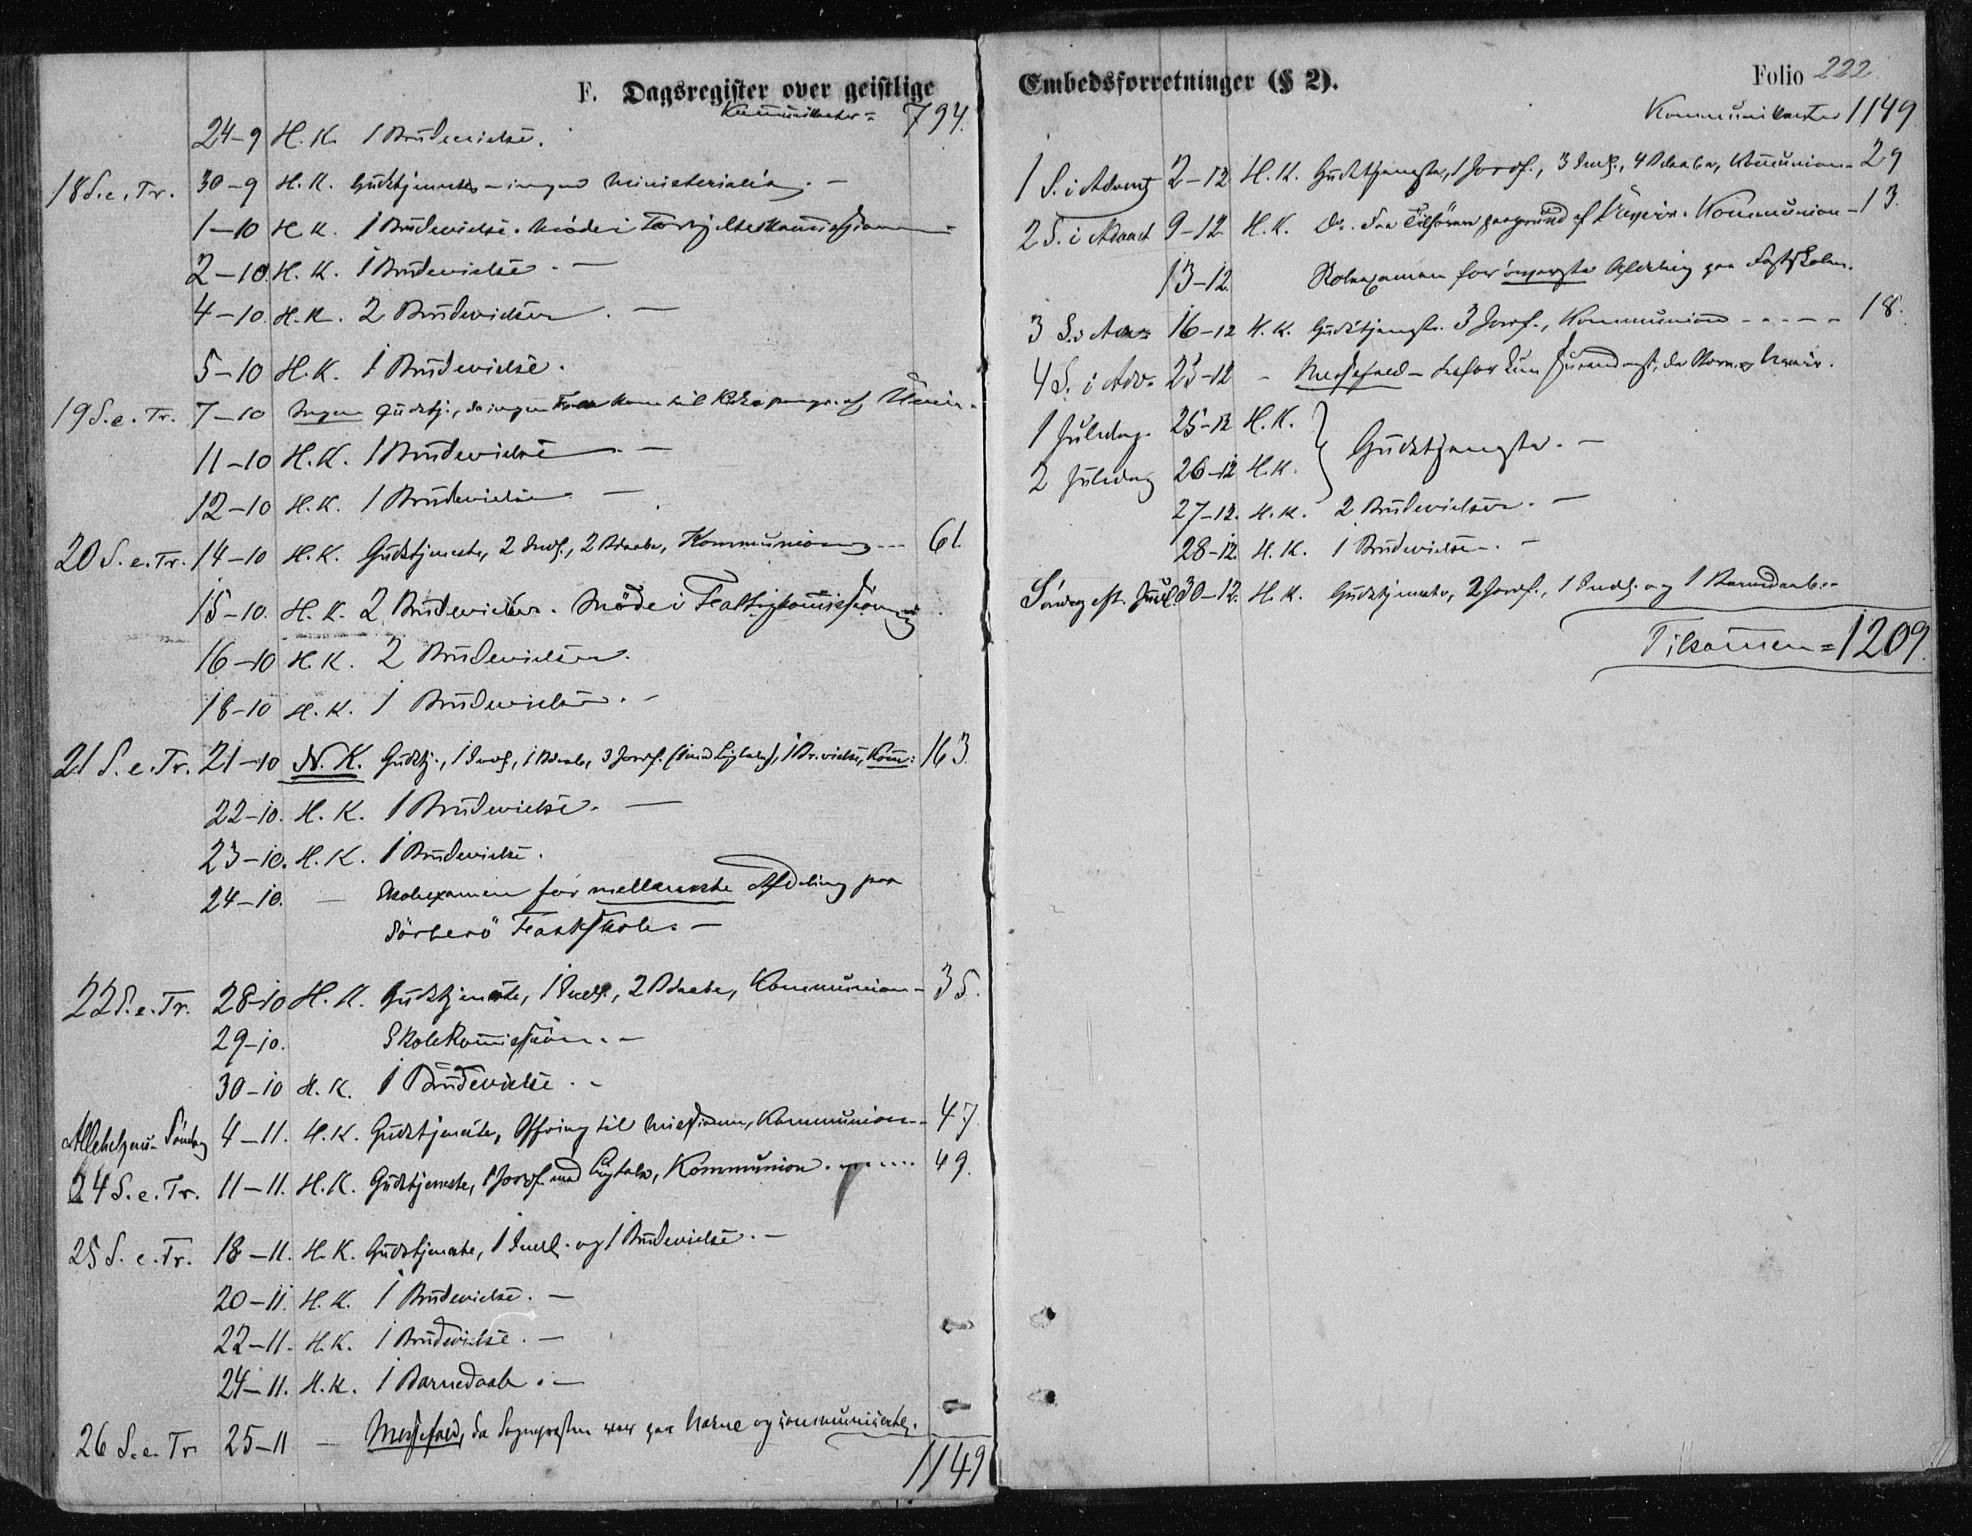 F. Dagsregister over geistlige
Kommunikanter = 794.
24-9 H.K. 1 Brudevielse.
18 S.e. Tr. 30-9 H.K. Gudstjeneste - ingen Ministerialia. -
1-10 H.K. 1 Brudevielse. Möde i Forligelseskommissionen -
2-10 H.K. 1 Brudevielse. -
4-10. H.K. 2 Brudevielser. -
5-10 H.K. 1 Brudevielse.
19 S.e. Tr. 7-10 Ingen Gudstj., da ingen Folk kom til Kirke paagr. af Uveir.
11-10 H.K. 1 Brudevielse -
12-10 H.K. 1 Brudevielse -
20 S.e. Tr. 14-10 H.K. Gudstjeneste, 2 Indl., 2 Bdaabe, Kommunion --- 61.
15-10. H.K. 2 Brudevielser. Möde i Fattigkommissionen
16-10 H.K. 2 Brudevielser.
18-10 H.K. 1 Brudevielse. -
21 S.e. Tr. 21-10 N.K. Gudstj., 1 Indl., 1 Bdaab, 3 Jordf. (1 med Ligtale), 1 Br.vielse, Kom: 163.
22-10. H.K. 1 Brudevielse. -
23-10. H.K. 1 Brudevielse.
24-10. - Skolexamen for mellemste Afdeling paa
Sörherö Fastskole. -
22 S.e. Tr. 28-10 H.K. Gudstjeneste, 1 Indl., 2 Bdaabe, Kommunion - 35.
29-10. Skolekommission. -
30-10 H.K. 1 Brudevielse. -
Allehelgens-Söndag 4-11. H.K. Gudstjeneste, Offring til Missionen, Kommunion - 47.
24 S.e. Tr. 11-11. H.K. Gudstjeneste, 1 Jordf. med Ligtale, Kommunion. ...... 49.
25 S.e. Tr. 18-11. H.K. Gudstjeneste, 1 Indl. og 1 Brudevielse. -
20-11. H.K. 1 Brudevielse. -
22-11. H.K. 1 Brudevielse. -
24-11. H.K. 1 Barnedaab. -
26 S.e. Tr. 25-11 - Messefald, da Sognepresten var paa og kommunicerte.
1149
Embedsforretninger (§ 2).
Folio 222.
Kommunikanter 1149.
1 S. i Advent 2-12 H.K. Gudstjeneste, 1 Jordf., 3 Indl., 4 Bdaabe, Kommunion - 29
2 S. i Advent 9-12. H.K. Do. Faa Tilhörere paagrund af Uveir. Kommunion - 13.
13-12. Skolexamen for överste Afdeling paa Fastskolen.
3 S. i Adv. 16-12 H.K. Gudstjeneste. 3 Jordf., Kommunion ----- 18.
4 S. i Adv. 23-12 - Messefald -
1 Juledag. 25-12 H.K. } Gudstjeneste. -
2 Juledag 26-12 H.K.
27-12. H.K. 2 Brudevielser. -
28-12. H.K. 1 Brudevielse. -
Söndag eft. Juul. 30-12. H.K. Gudstjeneste, 2 Jordf., 1 Indl. og 1 Barnedaab. -
Tilsammen = 1209.